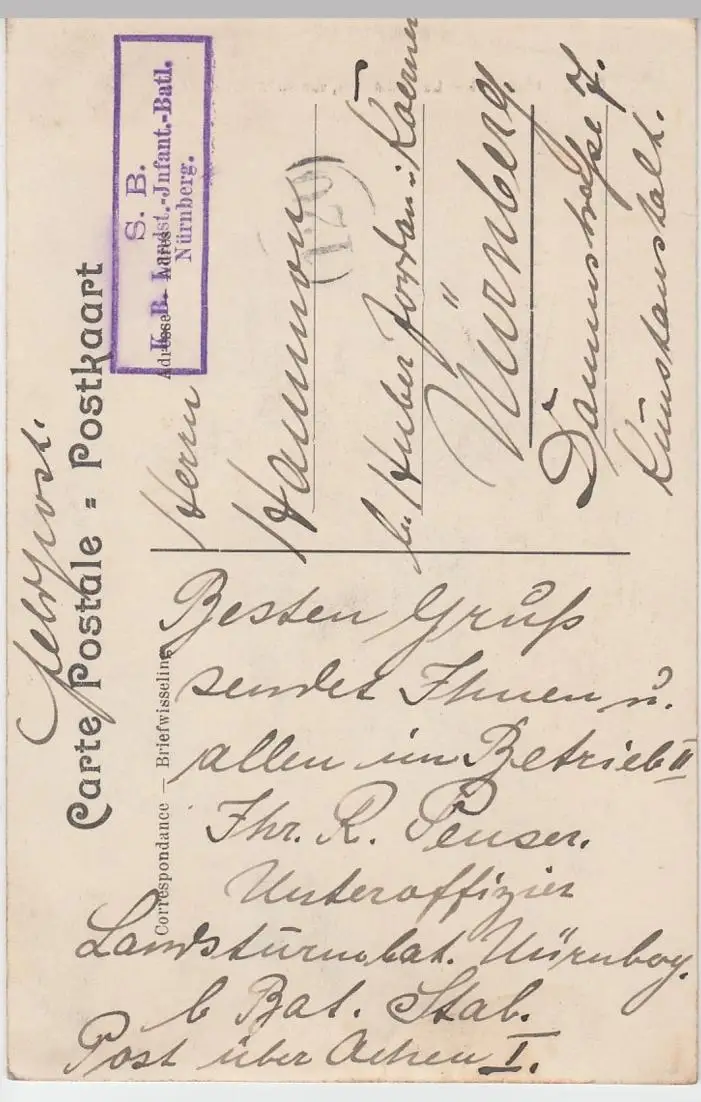 Feldpost.
Carte Postale = Postkaart
S. B.
K. B. Landst.-Infant.-Batl.
Nürnberg.
Adresse — Adres
Herrn
Hammon
bei Huber Jordan u. Koerner
Nürnberg.
Dammstraße 7.
Kunstanstalt.
(120)
Correspondance — Briefwisseling
Besten Gruß
sendet Ihnen u.
allen im Betrieb II
Ihr. R. Penser.
Unteroffizier
Landsturmbat. Nürnbg.
b Bat. Stab.
Post über Achen I.